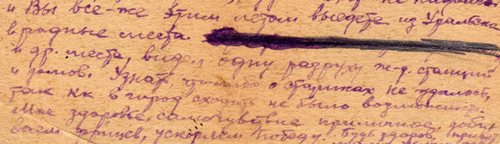 и Вы все-же этим летом выедете из Уральска
в родные места.
и др. места, видел одну разруху ж-д. станций
и домов. Узнать что-либо о стариках не удалось,
так как в город сходить не было возможности.
Мое здоровье, самочувствие приличное, доби
ваем фрицев, ускоряем победу. Будь здоров,